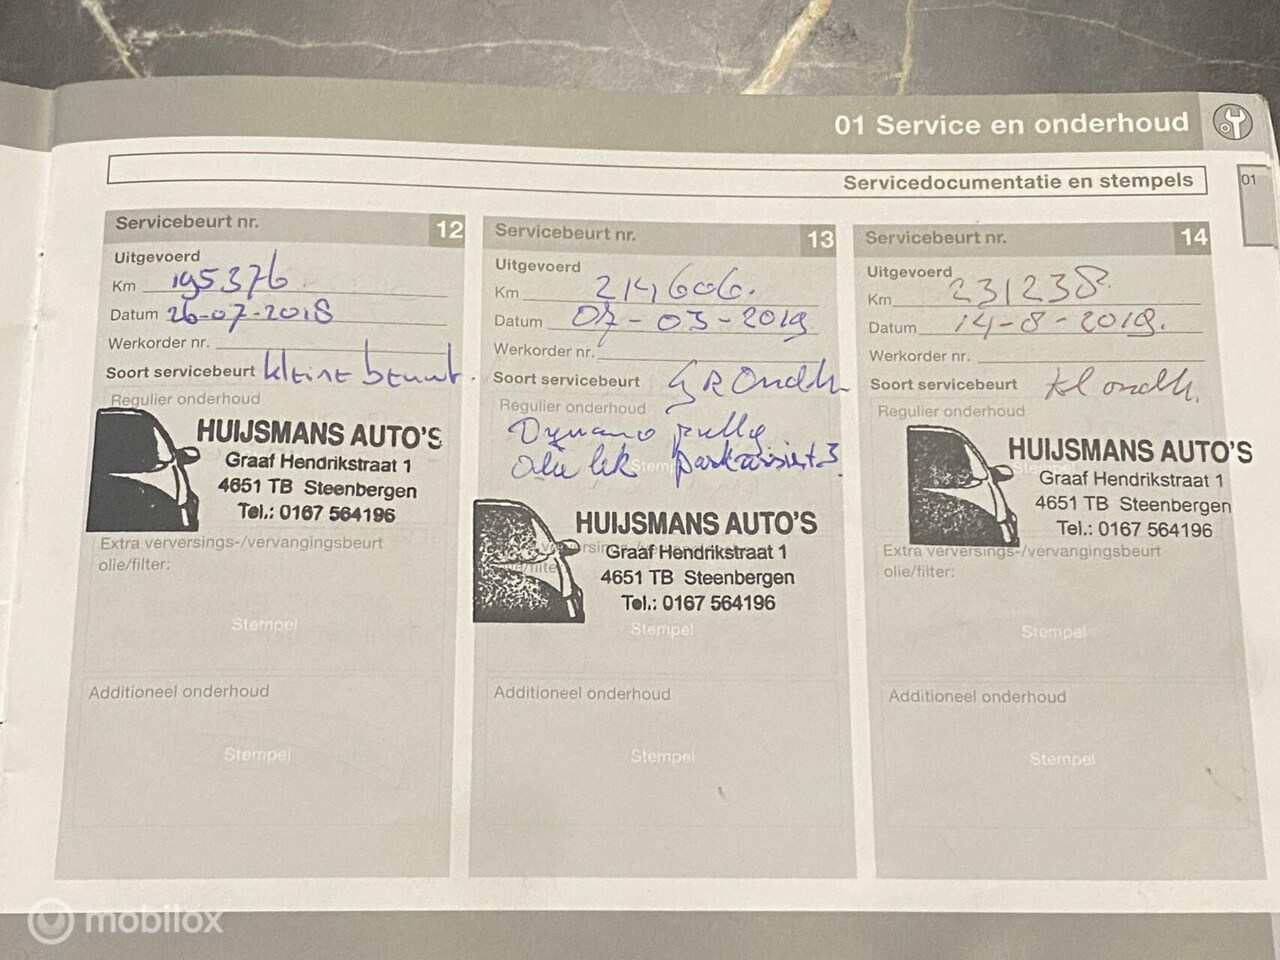 01 Service en onderhoud
Servicedocumentatie en stempels
01
Servicebeurt nr. 12
Uitgevoerd
Km 195376
Datum 26-07-2018
Werkorder nr.
Soort servicebeurt kleine beurt.
Regulier onderhoud
HUIJSMANS AUTO'S
Graaf Hendrikstraat 1
4651 TB Steenbergen
Tel.: 0167 564196
Extra verversings-/vervangingsbeurt
olie/filter:
Stempel
Additioneel onderhoud
Stempel
Servicebeurt nr. 13
Uitgevoerd
Km 214606.
Datum 07-03-2019
Werkorder nr.
Soort servicebeurt GR Ondh
Regulier onderhoud
Dynamo pully
Olie lek
Stem
HUIJSMANS AUTO'S
Graaf Hendrikstraat 1
4651 TB Steenbergen
Tel.: 0167 564196
Stempel
Additioneel onderhoud
Stempel
Servicebeurt nr. 14
Uitgevoerd
Km 231238.
Datum 14-8-2019.
Werkorder nr.
Soort servicebeurt kl ondh.
Regulier onderhoud
Stempel
HUIJSMANS AUTO'S
Graaf Hendrikstraat 1
4651 TB Steenbergen
Tel.: 0167 564196
Extra verversings-/vervangingsbeurt
olie/filter:
Stempel
Additioneel onderhoud
Stempel
mobilox